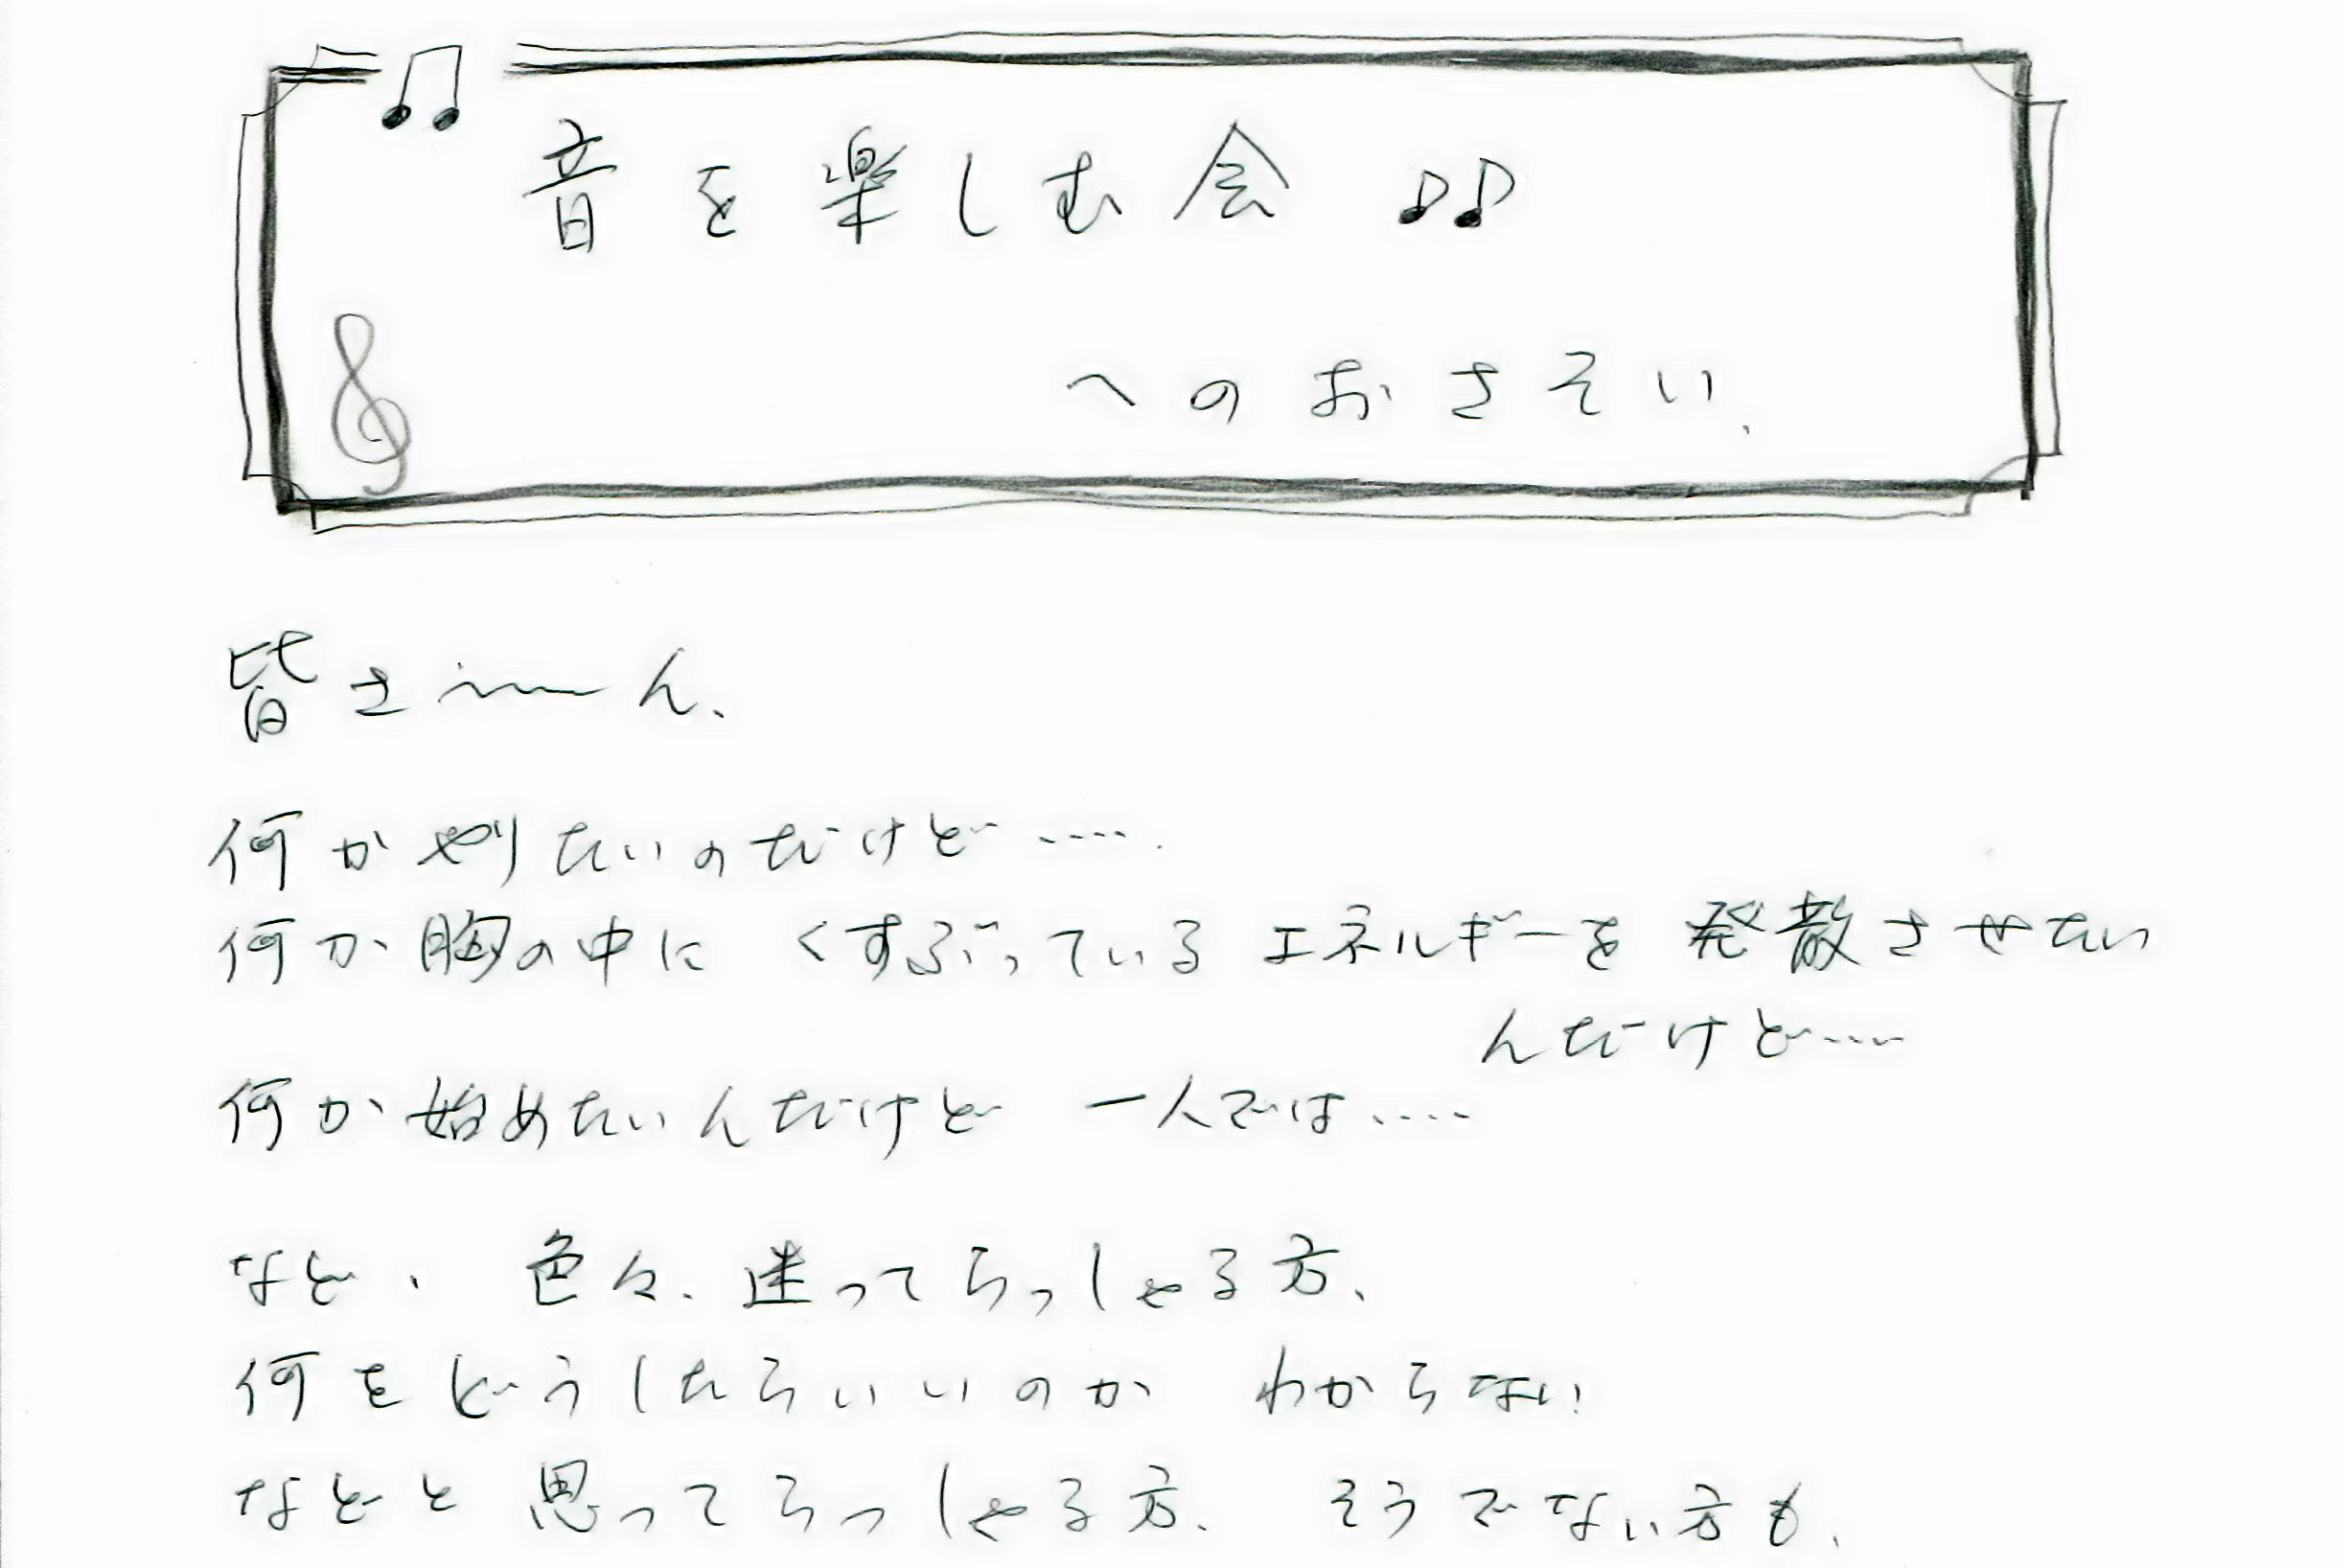 音を楽しむ会 ♪♪
へのおさそい、
皆さ〜〜ん、
何かやりたいのだけど‥‥‥
何か胸の中に くすぶっている エネルギーを 発散させたい
んだけど‥‥
何か始めたいんだけど 一人では‥‥
など、 色々、迷ってらっしゃる方、
何をどうしたらいいのか わからない
などと 思ってらっしゃる方、 そうでない方も、